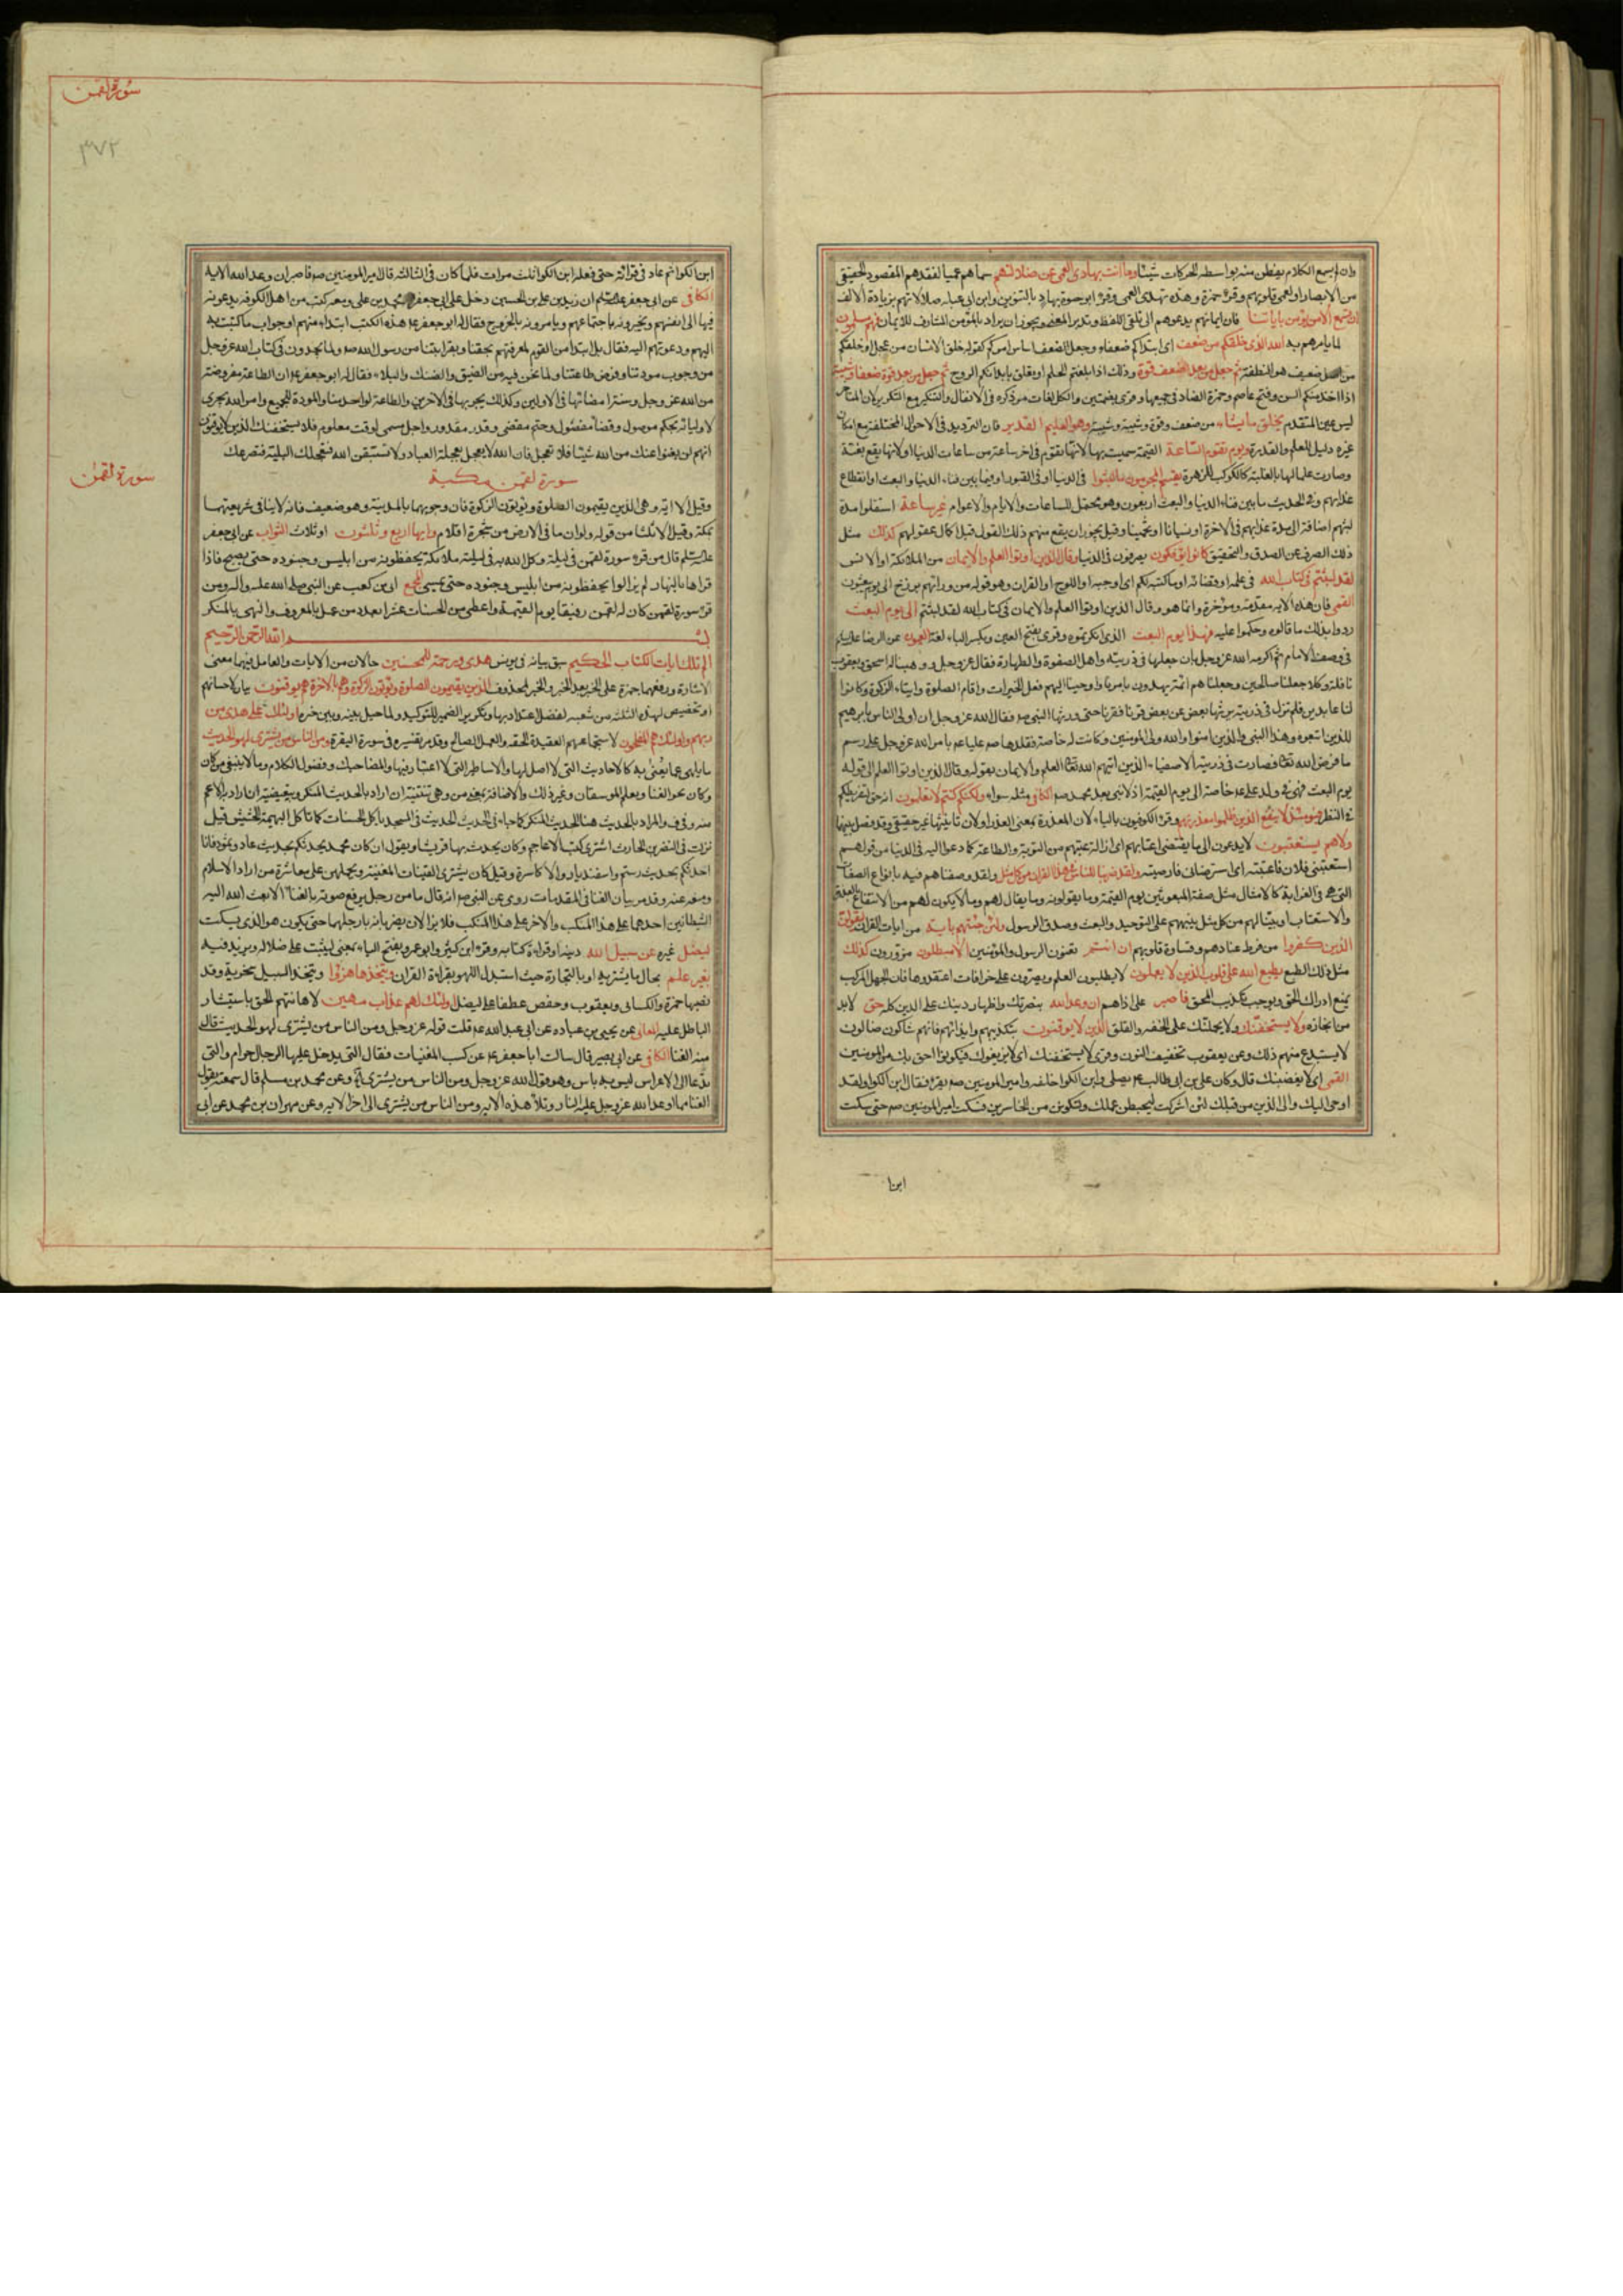 وان لم يسمع الكلام يفطن منه بواسطه الحركات شيئا وما انت بهادى العمى عن ضلالتهم سماهم عميا لفقدهم المقصود الحقيقى
من الابصار او لعمى قلوبهم وقرء حمزة وحده تهدى العمى
ان تسمع الا من يؤمن باياتنا فان ايمانهم يدعوهم الى تلقى اللفظ وتدبر المعنى ويجوز ان يراد بالمؤمن المشارف للايمان فهم مسلمون
لما يامرهم به الله الذى خلقكم من ضعف اى ابتداكم ضعفاء وجعل الضعف اساس امركم كقوله خلق الانسان من عجل او خلقكم
من اصل ضعيف هو النطفة ثم جعل من بعد ضعف قوة وذلك اذا بلغتم الحلم او تعلق بابدانكم الروح ثم جعل من بعد قوة ضعفا وشيبة
اذا اخذ منكم السن وفتح عاصم وحمزة الضاد فى جميعها وقرى بضمتين والكل لغات والتنكير مع التكرير لان المتاخر
ليس عين المتقدم يخلق ما يشاء من ضعف وقوة وشبيبة وشيبة وهو العليم القدير فان الترديد فى الاحوال المختلفة مع امكان
غيره دليل العلم والقدرة ويوم تقوم الساعة القيمة سميت بها لانها تقوم فى اخر ساعة من ساعات الدنيا او لانها تقع بغتة
وصارت علما لها بالغلبة كالكوكب للزهرة يقسم المجرمون ما لبثوا فى الدنيا او فى القبور او فيما بين فناء الدنيا والبعث او انقطاع
عذابهم وفى الحديث ما بين فناء الدنيا والبعث اربعون وهو محتمل الساعات والايام والاعوام غير ساعة استقلوا مدة
لبثهم اضافة الى مدة عذابهم فى الاخرة او نسيانا كذلك مثل
ذلك الصرف عن الصدق والتحقيق كانوا يؤفكون يصرفون فى الدنيا وقال الذين اوتوا العلم والايمان من الملائكة او الانس
لقد لبثتم فى كتاب الله فى علمه او قضائه او ما كتبه لكم اى اوجبه او اللوح او القران وهو قوله ومن ورائهم برزخ الى يوم يبعثون
القمى فان هذه الاية مقدمة ومؤخرة وانما هو وقال الذين اوتوا العلم والايمان فى كتاب الله لقد لبثتم الى يوم البعث
ردوا بذلك ما قالوه وحكموا عليه فهذا يوم البعث الذى انكرتموه وقرى بفتح العين وبكسر الباء عن الرضا عليه السلام
فى وصف الامام ثم اكرمه الله عز وجل بان جعلها فى ذريته واهل الصفوة والطهارة فقال عز وجل ووهبنا له اسحق ويعقوب
نافلة وكلا جعلنا صالحين وجعلناهم ائمة يهدون بامرنا واوحينا اليهم فعل الخيرات واقام الصلوة وايتاء الزكوة وكانوا
لنا عابدين فلم تزل فى ذريته يرثها بعض عن بعض قرنا فقرنا حتى ورثها النبى ص فقال الله عز وجل ان اولى الناس بابرهيم
للذين اتبعوه وهذا النبى والذين امنوا والله ولى المؤمنين وكانت له خاصة فقلدها ص عليا ع بامر الله عز وجل على رسم
ما فرض الله تعا فصارت فى ذريته الاصفياء الذين اتيهم الله تعا العلم والايمان بقوله وقال الذين اوتوا العلم الى قوله
يوم البعث فهى فى ولد على ع خاصة الى يوم القيمة اذ لا نبى بعد محمد ص الكافى مثله سواء ولكنكم كنتم لا تعلمون انه حق لتفريطكم
فى النظر فيومئذ لا ينفع الذين ظلموا معذرتهم وقرء الكوفيون بالياء لان المعذرة بمعنى العذر او لان تانيثها غير حقيقى وقد فصل بينهما
ولا هم يستعتبون لا يدعون الى ما يقتضى اعتابهم اى ازالة عتبهم من التوبة والطاعة كما دعوا اليه فى الدنيا من قولهم
استعتبنى فلان فاعتبته اى استرضانى فارضيته ولقد ضربنا للناس فى هذا القران من كل مثل ولقد وصفناهم فيه بانواع الصفات
التى هى فى الغرابة كالامثال مثل صفة المبعوثين يوم القيمة وما يقولونه وما يقال لهم وما لا يكون لهم من الانتفاع بالمعذرة
والاستعتاب او بينا لهم من كل مثل ينبههم على التوحيد والبعث وصدق الرسول ولئن جئتهم باية من ايات القران ليقولن
الذين كفروا من فرط عنادهم وقساوة قلوبهم ان انتم يعنون الرسول والمؤمنين الا مبطلون مزورون كذلك
مثل ذلك الطبع يطبع الله على قلوب الذين لا يعلمون لا يطلبون العلم ويصرون على خرافات اعتقدوها فان الجهل المركب
يمنع ادراك الحق ويوجب تكذيب المحق فاصبر على اذاهم ان وعد الله بنصرتك واظهار دينك على الدين كله حق لا بد
من انجازه ولا يستخفنك ولا يحملنك على الخفة والقلق الذين لا يوقنون بتكذيبهم وايذائهم فانهم شاكون ضالون
لا يستبدع منهم ذلك وعن يعقوب تخفيف النون وقرى لا يستحقنك اى لا يزيغوك فيكونوا احق بك من المؤمنين
القمى اى لا يغضبنك قال وكان على بن ابى طالب ع يصلى وابن الكوا خلفه وامير المؤمنين ص يقرء فقال ابن الكوا ولقد
اوحى اليك والى الذين من قبلك لئن اشركت ليحبطن عملك ولتكونن من الخاسرين فسكت امير المؤمنين ص حتى سكت
ابن ا
سورة لقمن
٣٧٢
ابن الكوا ثم عاد فى قرائته حتى فعل ابن الكوا ثلث مرات فلما كان فى الثالثة قال امير المؤمنين ص فاصبر ان وعد الله الاية
الكافى عن ابى جعفر عليه السلم ان زيد بن على بن الحسين دخل على ابى جعفر محمد بن على ومعه كتب من اهل الكوفة يدعونه
فيها الى انفسهم ويخبرونه باجتماعهم ويامرونه بالخروج فقال له ابو جعفر ع هذه الكتب ابتداء منهم او جواب ما كتبت به
اليهم ودعوتهم اليه فقال بل ابتداء من القوم لمعرفتهم بحقنا وبقرابتنا من رسول الله ص ولما يجدون فى كتاب الله عز وجل
من وجوب مودتنا وفرض طاعتنا ولما نحن فيه من الضيق والضنك والبلاء فقال له ابو جعفر ع ان الطاعة مفروضة
من الله عز وجل وسنة امضاها فى الاولين وكذلك يجريها فى الاخرين والطاعة لواحد منا والمودة للجميع وامر الله يجرى
لاوليائه بحكم موصول وقضاء مفصول وحتم مقضى وقدر مقدور واجل مسمى لوقت معلوم فلا يستخفنك الذين لا يوقنون
انهم لن يغنوا عنك من الله شيئا فلا تعجل فان الله لا يعجل بعجلة العباد ولا تستبقن الله فتعجلك البلية فتصرعك
سورة لقمن
سورة لقمن مكية
وقيل الا اية وهى الذين يقيمون الصلوة ويؤتون الزكوة فان وجوبهما بالمدينة وهو ضعيف فانه لا ينافى شرعيتهما
بمكة وقيل الا ثلثا من قوله ولو ان ما فى الارض من شجرة اقلام وايها اربع وثلثون او ثلاث الثواب عن ابى جعفر
عليه السلم قال من قرء سورة لقمن فى ليلة وكل الله به فى ليلته ملائكة يحفظونه من ابليس وجنوده حتى يصبح فاذا
قراها بالنهار لم يزالوا يحفظونه من ابليس وجنوده حتى يمسى المجمع ابى بن كعب عن النبى صلى الله عليه واله ومن
قرء سورة لقمن كان له لقمن رفيقا يوم القيمة واعطى من الحسنات عشرا بعدد من عمل بالمعروف والنهى بالمنكر
بسم الله الرحمن الرحيم
الم تلك ايات الكتاب الحكيم سبق بيانه فى يونس هدى ورحمة للمحسنين حالان من الايات والعامل فيهما معنى
الاشارة ورفعهما حمزة على الخبر بعد الخبر او الخبر لمحذوف الذين يقيمون الصلوة ويؤتون الزكوة وهم بالاخرة هم يوقنون بيان لاحسانهم
او تخصيص لهذه الثلثة من شعبه لفضل اعتداد بها وتكرير الضمير للتوكيد ولما حيل بينه وبين خبره اولئك على هدى من
ربهم واولئك هم المفلحون لاستجماعهم العقيدة الحقه والعمل الصالح وقد مر تفسيره فى سورة البقرة ومن الناس من يشترى لهو الحديث
ما يلهى عما يعنى به كالاحاديث التى لا اصل لها والاساطير التى لا اعتبار فيها والمضاحيك وفضول الكلام وما لا ينبغى من كان
وكان نحو الغنا وتعلم الموسيقان وغير ذلك والاضافة بمعنى من وهى تبيينية ان اراد بالحديث المنكر وتبعيضية ان اراد به الاعم
منه وفى ف والمراد بالحديث هنا الحديث المنكر كما جاء فى الحديث الحديث فى المسجد ياكل الحسنات كما تاكل البهيمة الحشيش قيل
نزلت فى النضر بن الحارث اشترى كتب الاعاجم وكان يحدث بها قريشا ويقول ان كان محمد يحدثكم بحديث عاد وثمود فانا
احدثكم بحديث رستم واسفنديار والاكاسرة وقيل كان يشترى القينات المغنية ويحملهن على معاشرة من اراد الاسلام
ومنعه عنه وقد مر بيان الغنا فى المقدمات روى عن النبى ص انه قال ما من رجل يرفع صوته بالغنا الا بعث الله اليه
الشيطانين احدهما على هذا المنكب والاخر على هذا المنكب فلا يزالان يضربانه بارجلهما حتى يكون هو الذى يسكت
ليضل غيره عن سبيل الله دينه او قراءة كتابه وقرء ابن كثير وابو عمرو بفتح الياء بمعنى ليثبت على ضلاله ويزيد فيه
بغير علم بحال ما يشتريه او بالتجارة حيث استبدل اللهو بقراءة القران ويتخذها هزؤا ويتخذ السبيل سخرية وقد
نصبها حمزة والكسائى ويعقوب وحفص عطفا على ليضل اولئك لهم عذاب مهين لاهانتهم الحق باستيثار
الباطل عليه المعانى عن يحيى بن عباده عن ابى عبد الله ع قلت قوله عز وجل ومن الناس من يشترى لهو الحديث قال
منه الغنا الكافى عن ابى بصير قال سالت ابا جعفر ع عن كسب المغنيات فقال التى يدخل عليها الرجال حرام والتى
تدعا الى الاعراس ليس به باس وهو قول الله عز وجل ومن الناس من يشترى وعن محمد بن مسلم قال سمعته يقول
الغنا مما اوعد الله عز وجل عليه النار وتلا هذه الاية ومن الناس من يشترى الى اخر الاية وعن مهران بن محمد عن ابى